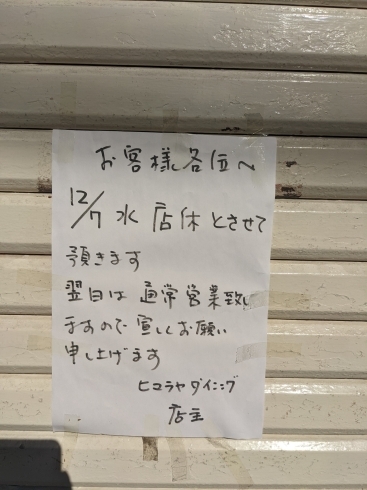 お客様各位〜
12/7 水 店休とさせて
頂きます
翌日は 通常営業致し
ますので宜しくお願い
申し上げます
ヒマラヤダイニング
店主